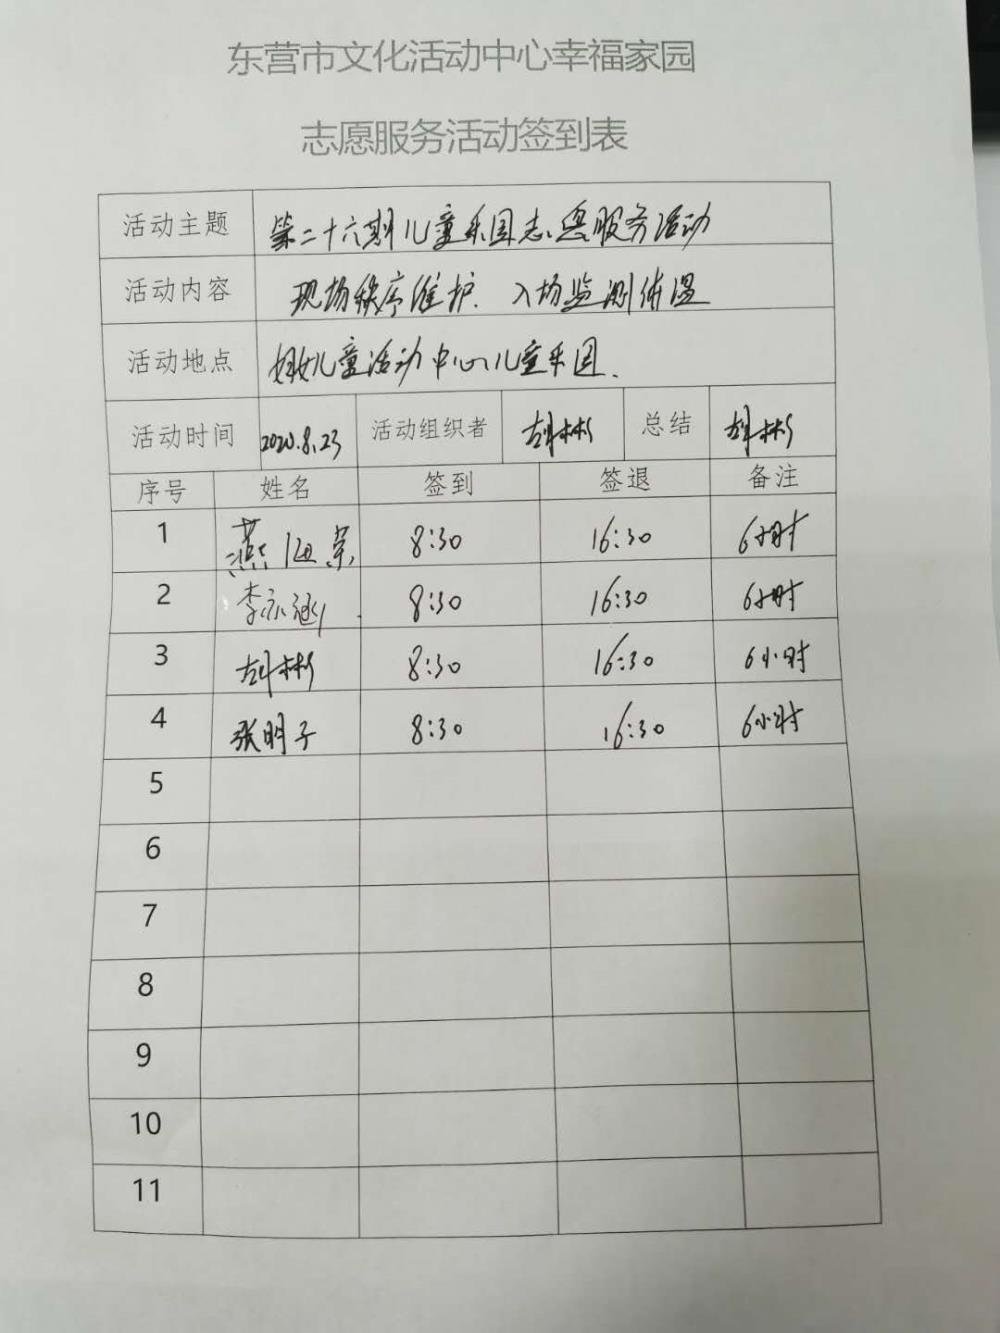 东营市文化活动中心幸福家园
志愿服务活动签到表
活动主题 第二十六期儿童乐园志愿服务活动
活动内容 现场秩序维护、入场监测体温
活动地点 妇女儿童活动中心儿童乐园.
活动时间 2020.8.23 活动组织者 胡彬彬 总结 胡彬彬
序号 姓名 签到 签退 备注
1 燕 荣 8:30 16:30 6小时
2 李永涵 8:30 16:30 6小时
3 胡彬彬 8:30 16:30 6小时
4 张明子 8:30 16:30 6小时
5
6
7
8
9
10
11